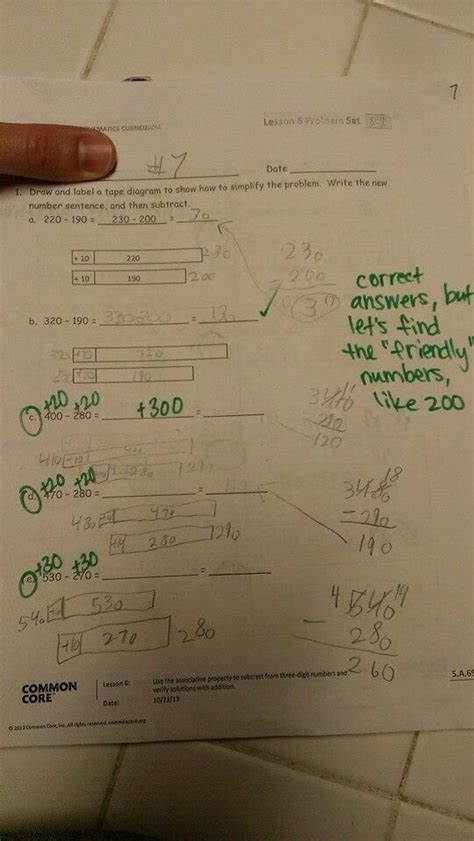 7
MATHEMATICS CURRICULUM
Lesson 6 Problem Set
#7
Date
1. Draw and label a tape diagram to show how to simplify the problem. Write the new
number sentence, and then subtract.
a. 220 - 190 = 230 - 200 = 30
+ 10 220 230
+ 10 190 200
230
- 200
03
b. 320 - 190 = 330-200 = 130 ✓
+10 320
+10 190
correct
answers, but
let's find
the "friendly"
numbers,
like 200
+20 +20
c. 400 - 280 = +300 =
120
410 +10 400
+10 280 290
+20 +20
d. 470 - 280 = =
480 470
280 290
- 290
190
+30 +30
e. 530 - 270 = =
540 530
+10 270 280
4 540 14
- 280
260
COMMON
CORE
Lesson 6:
Date:
Use the associative property to subtract from three-digit numbers and
verify solutions with addition.
10/23/13
© 2013 Common Core, Inc. All rights reserved. commoncore.org